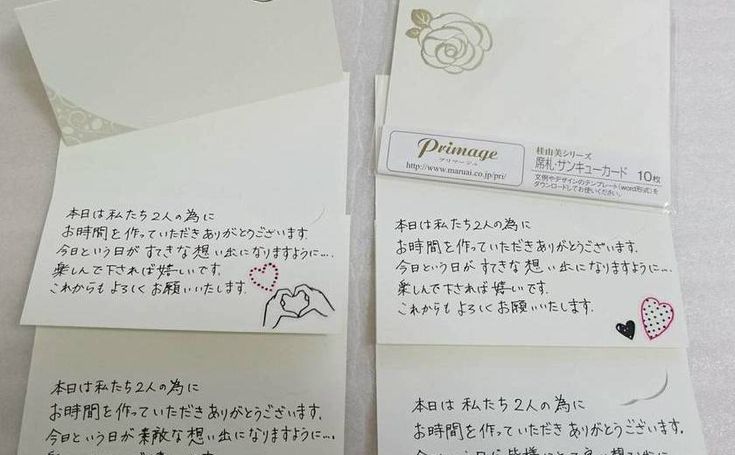 本日は私たち2人の為に
お時間を作っていただきありがとうございます。
今日という日がすてきな想い出になりますように….
楽しんで下されば嬉しいです。
これからもよろしくお願いいたします。
本日は私たち2人の為に
お時間を作っていただきありがとうございます。
今日という日が素敵な想い出になりますように….
Primage
プリマージュ
http://www.maruai.co.jp/pri/
桂由美シリーズ
席札・サンキューカード 10枚
文例やデザインのテンプレート(word形式)を
ダウンロードしてお使いください。
本日は私たち2人の為に
お時間を作っていただきありがとうございます。
今日という日がすてきな想い出になりますように….
楽しんで下されば嬉しいです。
これからもよろしくお願いいたします。
本日は私たち2人の為に
お時間を作っていただきありがとうございます。